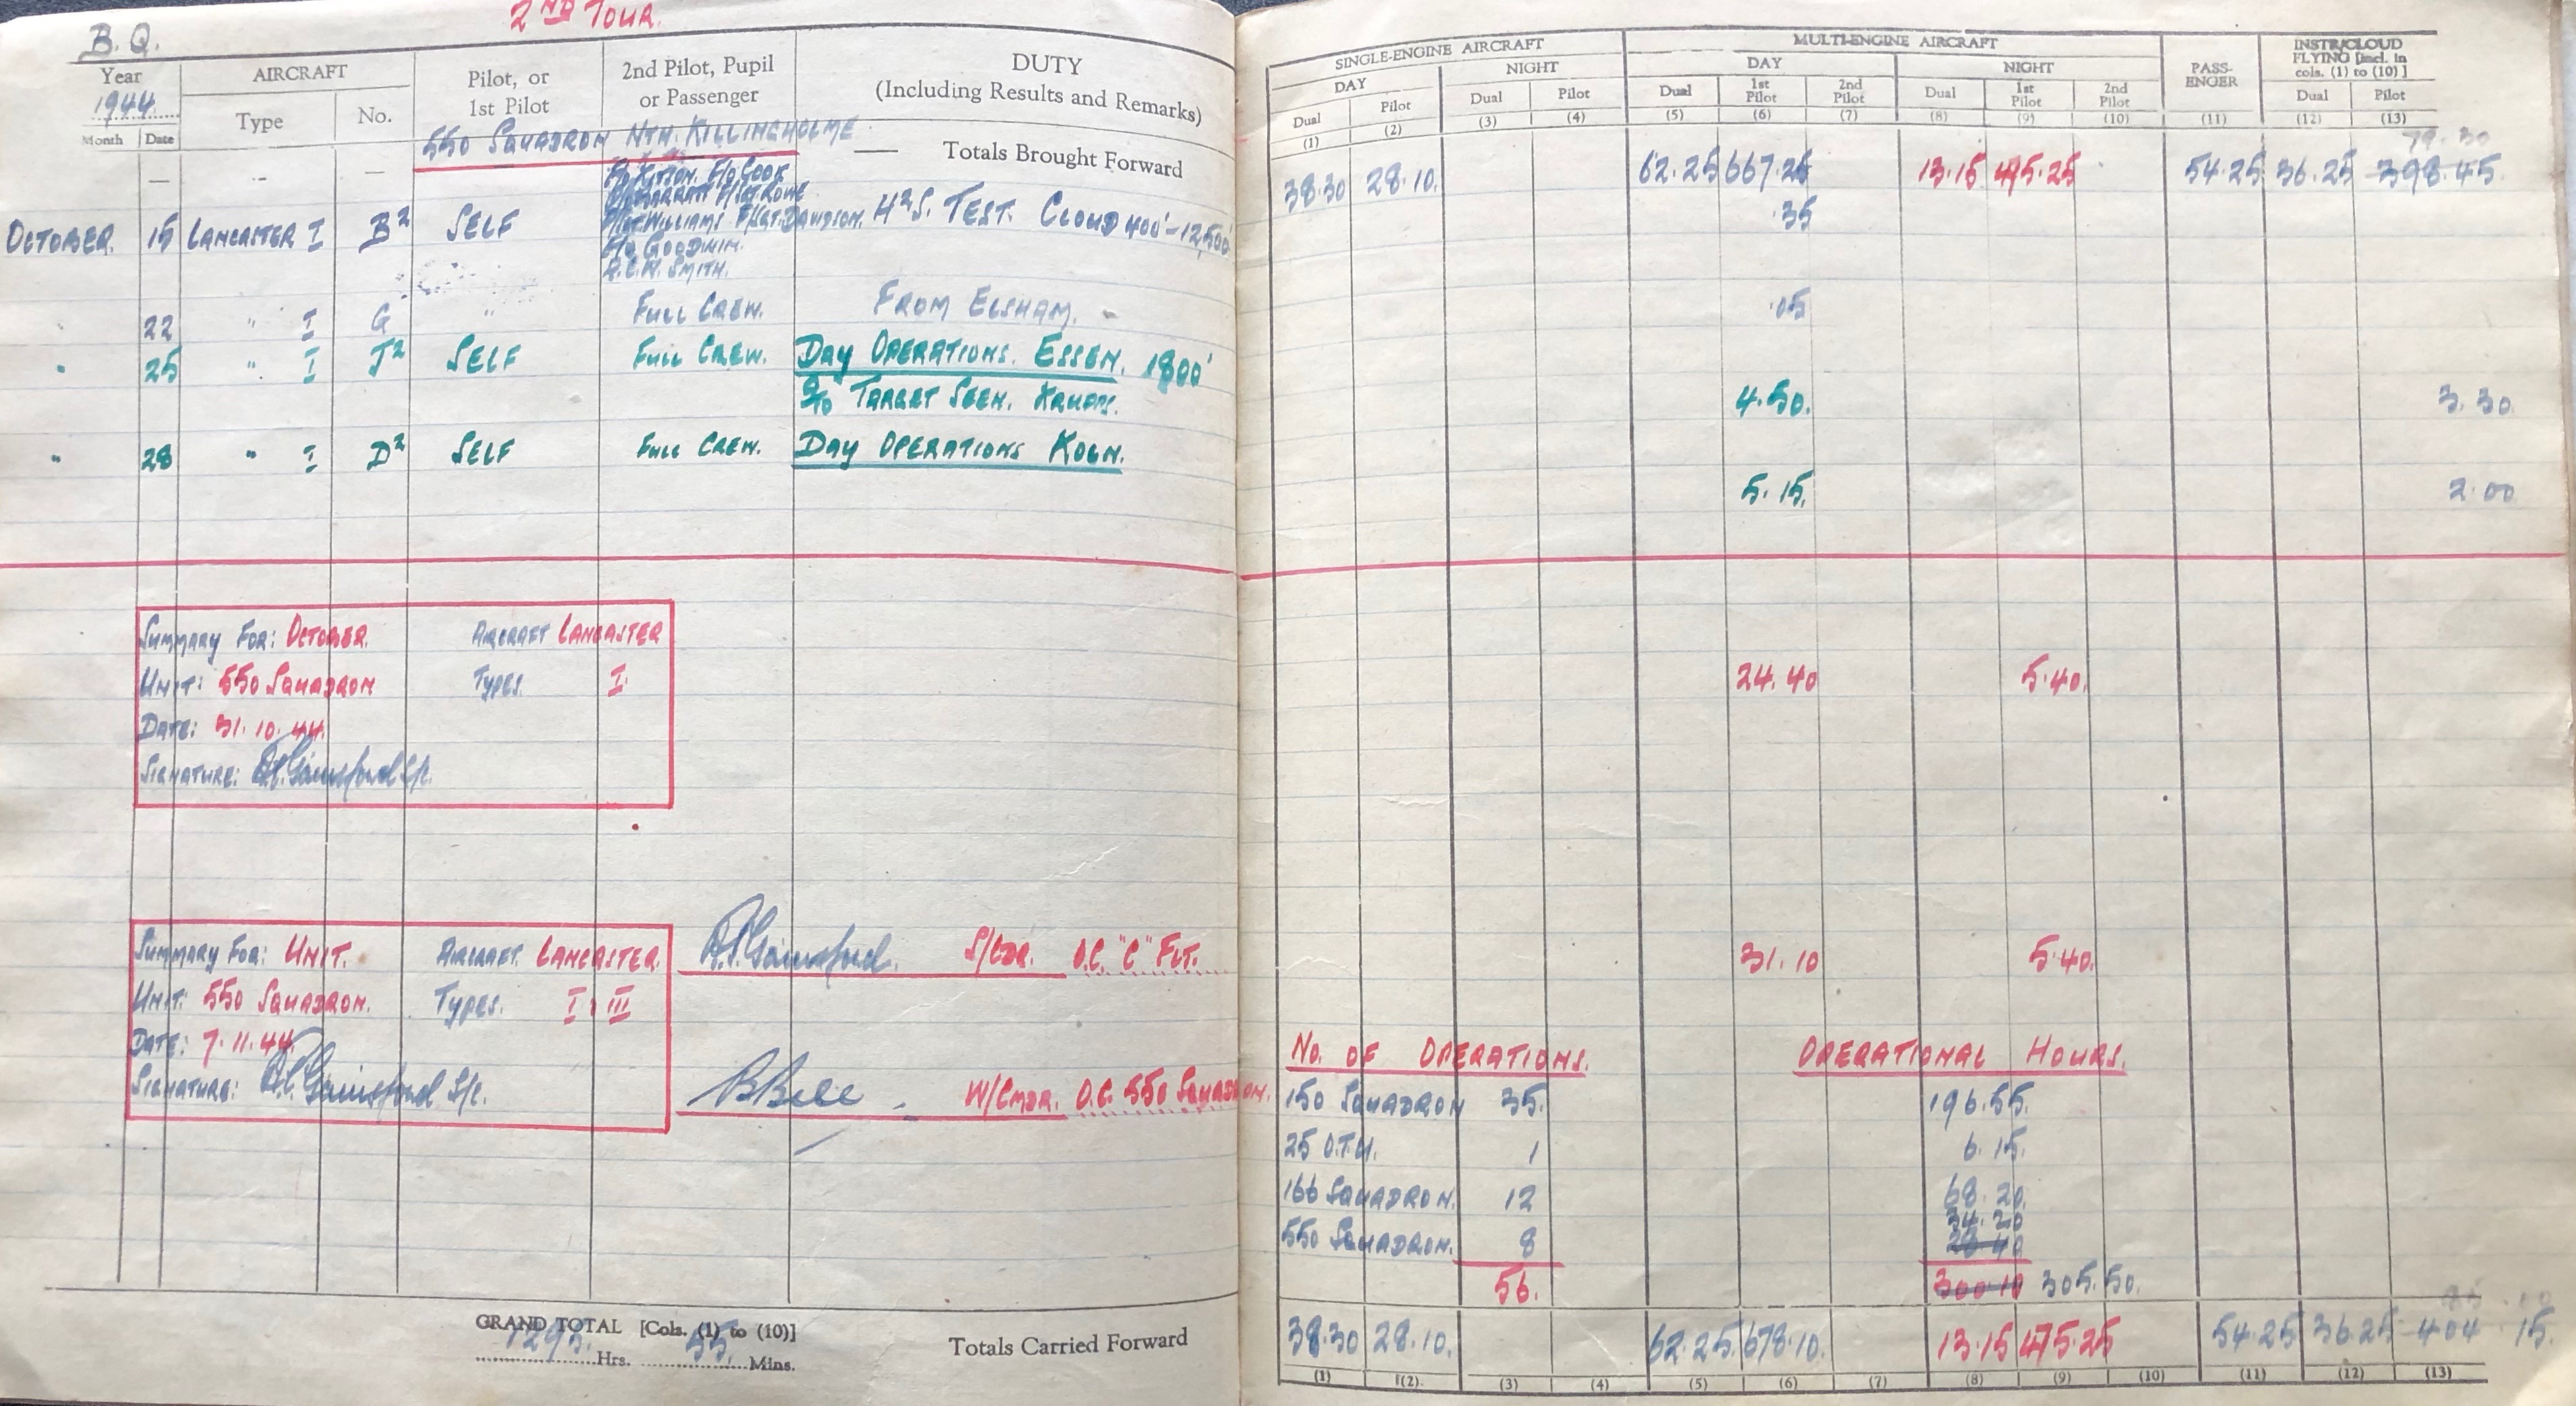 2ND TOUR.
B.Q.
Year 1944.
AIRCRAFT
Pilot, or 1st Pilot
2nd Pilot, Pupil or Passenger
DUTY (Including Results and Remarks)
Month Date Type No.
550 SQUADRON NTH. KILLINGHOLME
— — — — Totals Brought Forward
F/O COOK
F/SGT ROWE
F/SGT WILLIAMS F/SGT. DAVIDSON.
F/O GOODWIN.
SMITH.
OCTOBER. 15 LANCASTER I B² SELF H²S. TEST. CLOUD 400'-12,500'
" 22 " I G " FULL CREW. FROM ELSHAM.
" 25 " I J² SELF FULL CREW. DAY OPERATIONS. ESSEN. 1800'
TARGET SEEN. KRUPPS.
" 28 " I D² SELF FULL CREW. DAY OPERATIONS KOLN.
SUMMARY FOR: OCTOBER. AIRCRAFT LANCASTER
UNIT: 550 SQUADRON TYPES. I.
DATE: 31.10.44.
SIGNATURE: Gainsford S/L.
SUMMARY FOR: UNIT. AIRCRAFT LANCASTER.
UNIT: 550 SQUADRON. TYPES. I, III
DATE: 7.11.44.
SIGNATURE: Gainsford S/L.
Gainsford. S/LDR. O.C. "C" FLT.
BBell W/CMDR. O.C. 550 SQUADRON.
GRAND TOTAL [Cols. (1) to (10)]
1295 Hrs. 55 Mins.
Totals Carried Forward
SINGLE-ENGINE AIRCRAFT
MULTI-ENGINE AIRCRAFT
PASS-ENGER
INSTR/CLOUD FLYING [incl. in cols. (1) to (10)]
DAY NIGHT DAY NIGHT
Dual Pilot Dual Pilot Dual 1st Pilot 2nd Pilot Dual 1st Pilot 2nd Pilot Dual Pilot
(1) (2) (3) (4) (5) (6) (7) (8) (9) (10) (11) (12) (13)
79.30
38.30 28.10. 62.25 667.25 13.15 475.25 54.25 36.25 398.45
.35
.05
4.50. 3.30
5.15. 2.00
24.40 5.40.
31.10 5.40.
NO. OF OPERATIONS. OPERATIONAL HOURS.
150 SQUADRON 35. 196.55.
25 O.T.U. 1 6.15.
166 SQUADRON. 12 68.20.
34.20
550 SQUADRON. 8 28.40
56. 300.10 305.50.
38.30 28.10. 62.25. 678.10. 13.15 475.25 54.25 36.25 404 15.
(1) (2) (3) (4) (5) (6) (7) (8) (9) (10) (11) (12) (13)